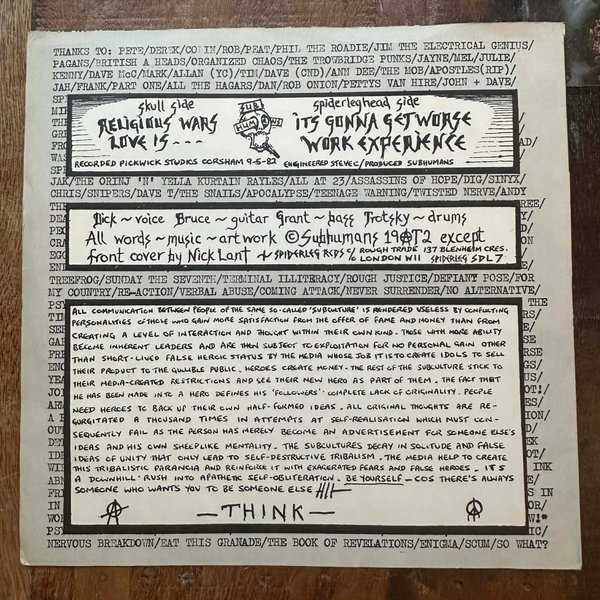 THANKS TO: PETE/DEREK/COLIN/ROB/PEAT/PHIL THE ROADIE/JIM THE ELECTRICAL GENIUS/
PAGANS/BRITISH A HEADS/ORGANIZED CHAOS/THE TROWBRIDGE PUNKS/JAYNE/MEL/JULIE/
KENNY/DAVE McC/MARK/ALLAN (YC)/TIM/DAVE (CND)/ANN DEE/THE MOB/APOSTLES(RIP)/
JAH/FRANK/PART ONE/ALL THE HAGARS/DAN/ROB ONION/PETTYS VAN HIRE/JOHN + DAVE/
skull side
SUB HUMANS
spiderleghead side
RELIGIOUS WARS
ITS GONNA GET WORSE
LOVE IS ---
WORK EXPERIENCE
RECORDED PICKWICK STUDIOS CORSHAM 9-5-82 ENGINEERED STEVE C/PRODUCED SUBHUMANS
JAK/THE ORINJ 'N' YELLA KURTAIN RAYLES/ALL AT 23/ASSASSINS OF HOPE/DIG/SINYX/
CHRIS/SNIPERS/DAVE T/THE SNAILS/APOCALYPSE/TEENAGE WARNING/TWISTED NERVE/ANDY
Dick ~ voice Bruce ~ guitar Grant ~ bass Trotsky ~ drums
All words ~ music ~ artwork © Subhumans 1982 except
front cover by Nick Lant + SPIDERLEG RCDS / ROUGH TRADE 137 BLENHEIM CRES.
LONDON W11 SPIDERLEG SDL 7
TREEFROG/SUNDAY THE SEVENTH/TERMINAL ILLITERACY/ROUGH JUSTICE/DEFIANT POSE/FOR
MY COUNTRY/RE-ACTION/VERBAL ABUSE/COMING ATTACK/NEVER SURRENDER/NO ALTERNATIVE/
ALL COMMUNICATION BETWEEN PEOPLE OF THE SAME SO-CALLED 'SUBCULTURE' IS RENDERED USELESS BY CONFLICTING
PERSONALITIES OF THOSE WHO GAIN MORE SATISFACTION FROM THE OFFER OF FAME AND MONEY THAN FROM
CREATING A LEVEL OF INTERACTION AND THOUGHT WITHIN THEIR OWN KIND. THOSE WITH MORE ABILITY
BECOME INHERENT LEADERS AND ARE THEN SUBJECT TO EXPLOITATION FOR NO PERSONAL GAIN OTHER
THAN SHORT-LIVED FALSE HEROIC STATUS BY THE MEDIA WHOSE JOB IT IS TO CREATE IDOLS TO SELL
THEIR PRODUCT TO THE GULLIBLE PUBLIC. HEROES CREATE MONEY. THE REST OF THE SUBCULTURE STICK TO
THEIR MEDIA-CREATED RESTRICTIONS AND SEE THEIR NEW HERO AS PART OF THEM. THE FACT THAT
HE HAS BEEN MADE INTO A HERO DEFINES HIS 'FOLLOWERS' COMPLETE LACK OF ORIGINALITY. PEOPLE
NEED HEROES TO BACK UP THEIR OWN HALF-FORMED IDEAS. ALL ORIGINAL THOUGHTS ARE RE-
GURGITATED A THOUSAND TIMES IN ATTEMPTS AT SELF-REALISATION WHICH MUST CON-
SEQUENTLY FAIL AS THE PERSON HAS MERELY BECOME AN ADVERTISEMENT FOR SOMEONE ELSE'S
IDEAS AND HIS OWN SHEEPLIKE MENTALITY. THE SUBCULTURES DECAY IN SOLITUDE AND FALSE
IDEAS OF UNITY THAT ONLY LEAD TO SELF-DESTRUCTIVE TRIBALISM. THE MEDIA HELP TO CREATE
THIS TRIBALISTIC PARANOIA AND REINFORCE IT WITH EXAGERATED FEARS AND FALSE HEROES. IT'S
A DOWNHILL RUSH INTO APATHETIC SELF-OBLITERATION. BE YOURSELF - COS THERE'S ALWAYS
SOMEONE WHO WANTS YOU TO BE SOMEONE ELSE
— THINK —
NERVOUS BREAKDOWN/EAT THIS GRANADE/THE BOOK OF REVELATIONS/ENIGMA/SCUM/SO WHAT?